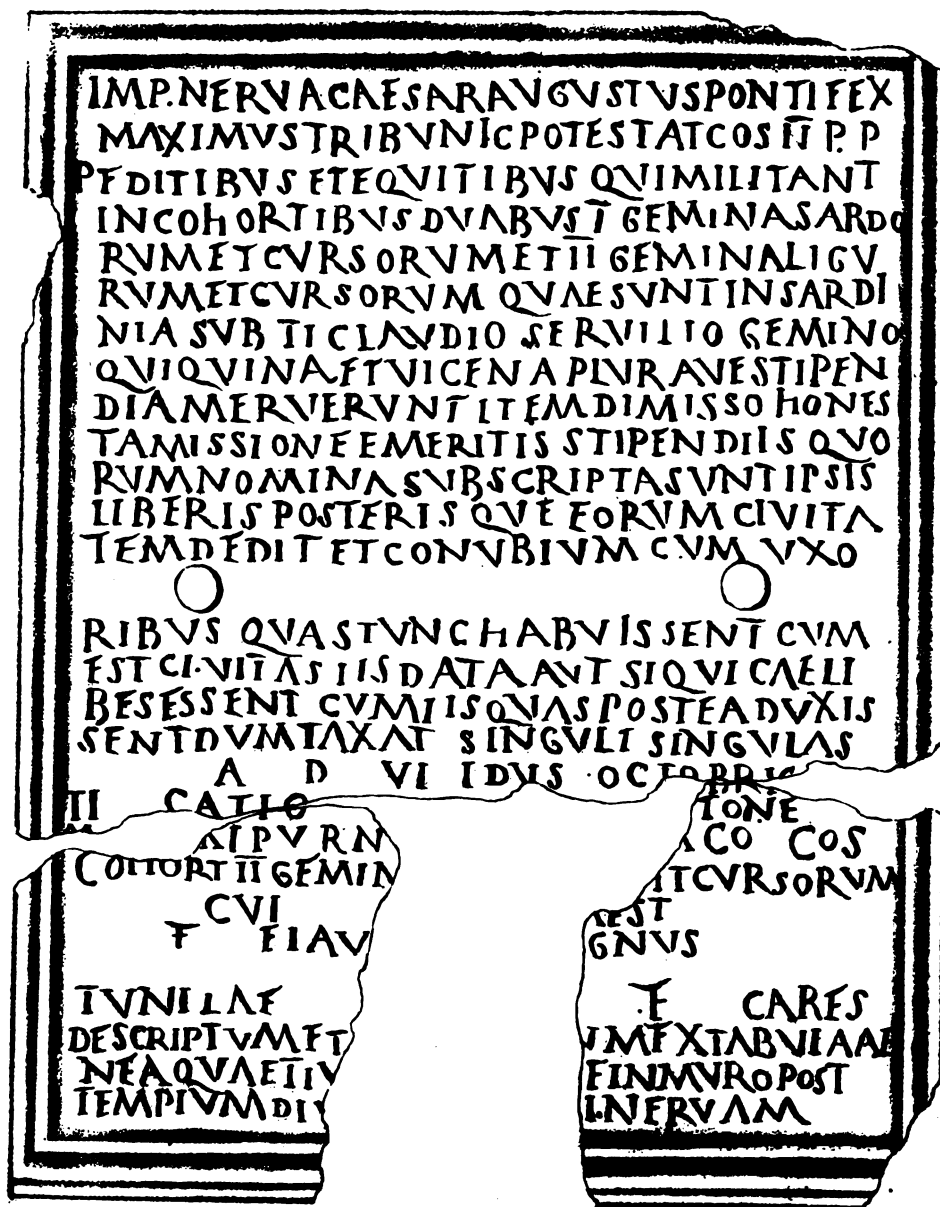 IMP. NERVA CAESAR AVGVSTVS PONTIFEX
MAXIMVS TRIBVNIC POTESTAT COS II P. P
PEDITIBVS ET EQVITIBVS QVI MILITANT
IN COHORTIBVS DVABVS I GEMINA SARDO
RVM ET CVRSORVM ET II GEMINA LIGV
RVM ET CVRSORVM QVAE SVNT IN SARDI
NIA SVB TI CLAVDIO SERVILIO GEMINO
QVI QVINA ET VICENA PLVRAVE STIPEN
DIA MERVERVNT ITEM DIMISSO HONES
TA MISSIONE EMERITIS STIPENDIIS QVO
RVM NOMINA SVBSCRIPTA SVNT IPSIS
LIBERIS POSTERISQVE EORVM CIVITA
TEM DEDIT ET CONVBIVM CVM VXO
RIBVS QVAS TVNC HABVISSENT CVM
EST CI·VITAS IIS DATA AVT SIQVI CAELI
BES ESSENT CVM IIS QVAS POSTEA DVXIS
SENT DVMTAXAT SINGVLI SINGVLAS
A D VI IDVS OCTOBRIS
TI CATIO TONE
COHORT II GEMIN IT CVRSORVM
CVI AEST
F EIAV GNVS
TVNILAE F CARES
DESCRIPTVM ET VM EX TABVLA AE
NEA QVAE FIX E IN MVRO POST
TEMPLVM DIV I. NERVAM